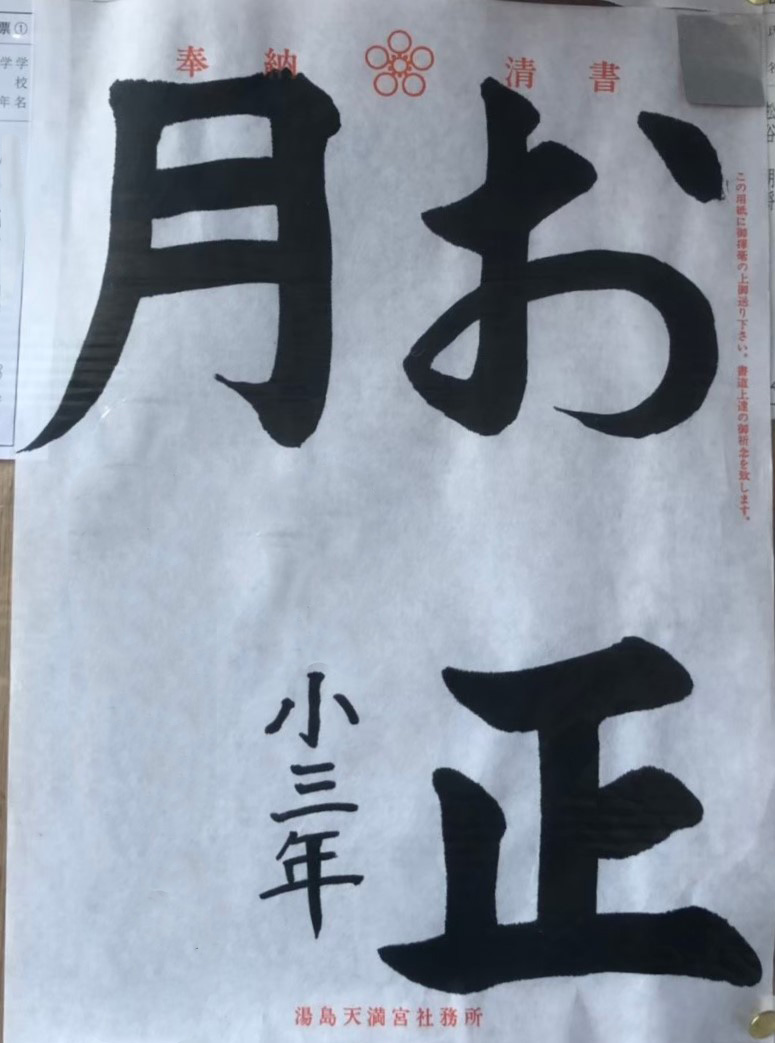 奉納 清書
お正
月
小三年
この用紙に御揮毫の上御送り下さい。書道上達の御祈念を致します。
湯島天満宮社務所
票①
学校名
学年